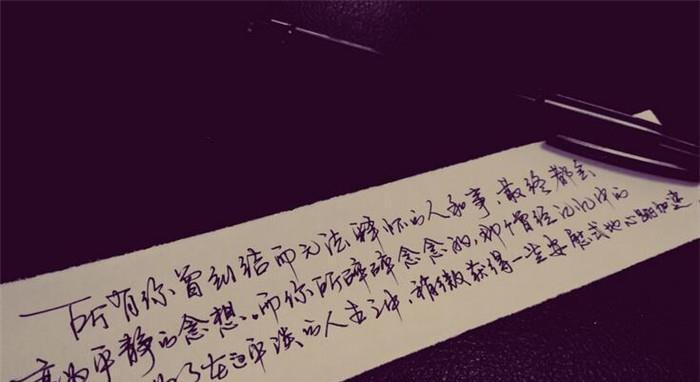 所有你曾纠结而无法释怀的人和事，最终都会
为平静的念想。而你所碎碎念念的，那个曾经记忆中的
了在这平淡的人生中，稍微获得一些安慰式地心跳加速